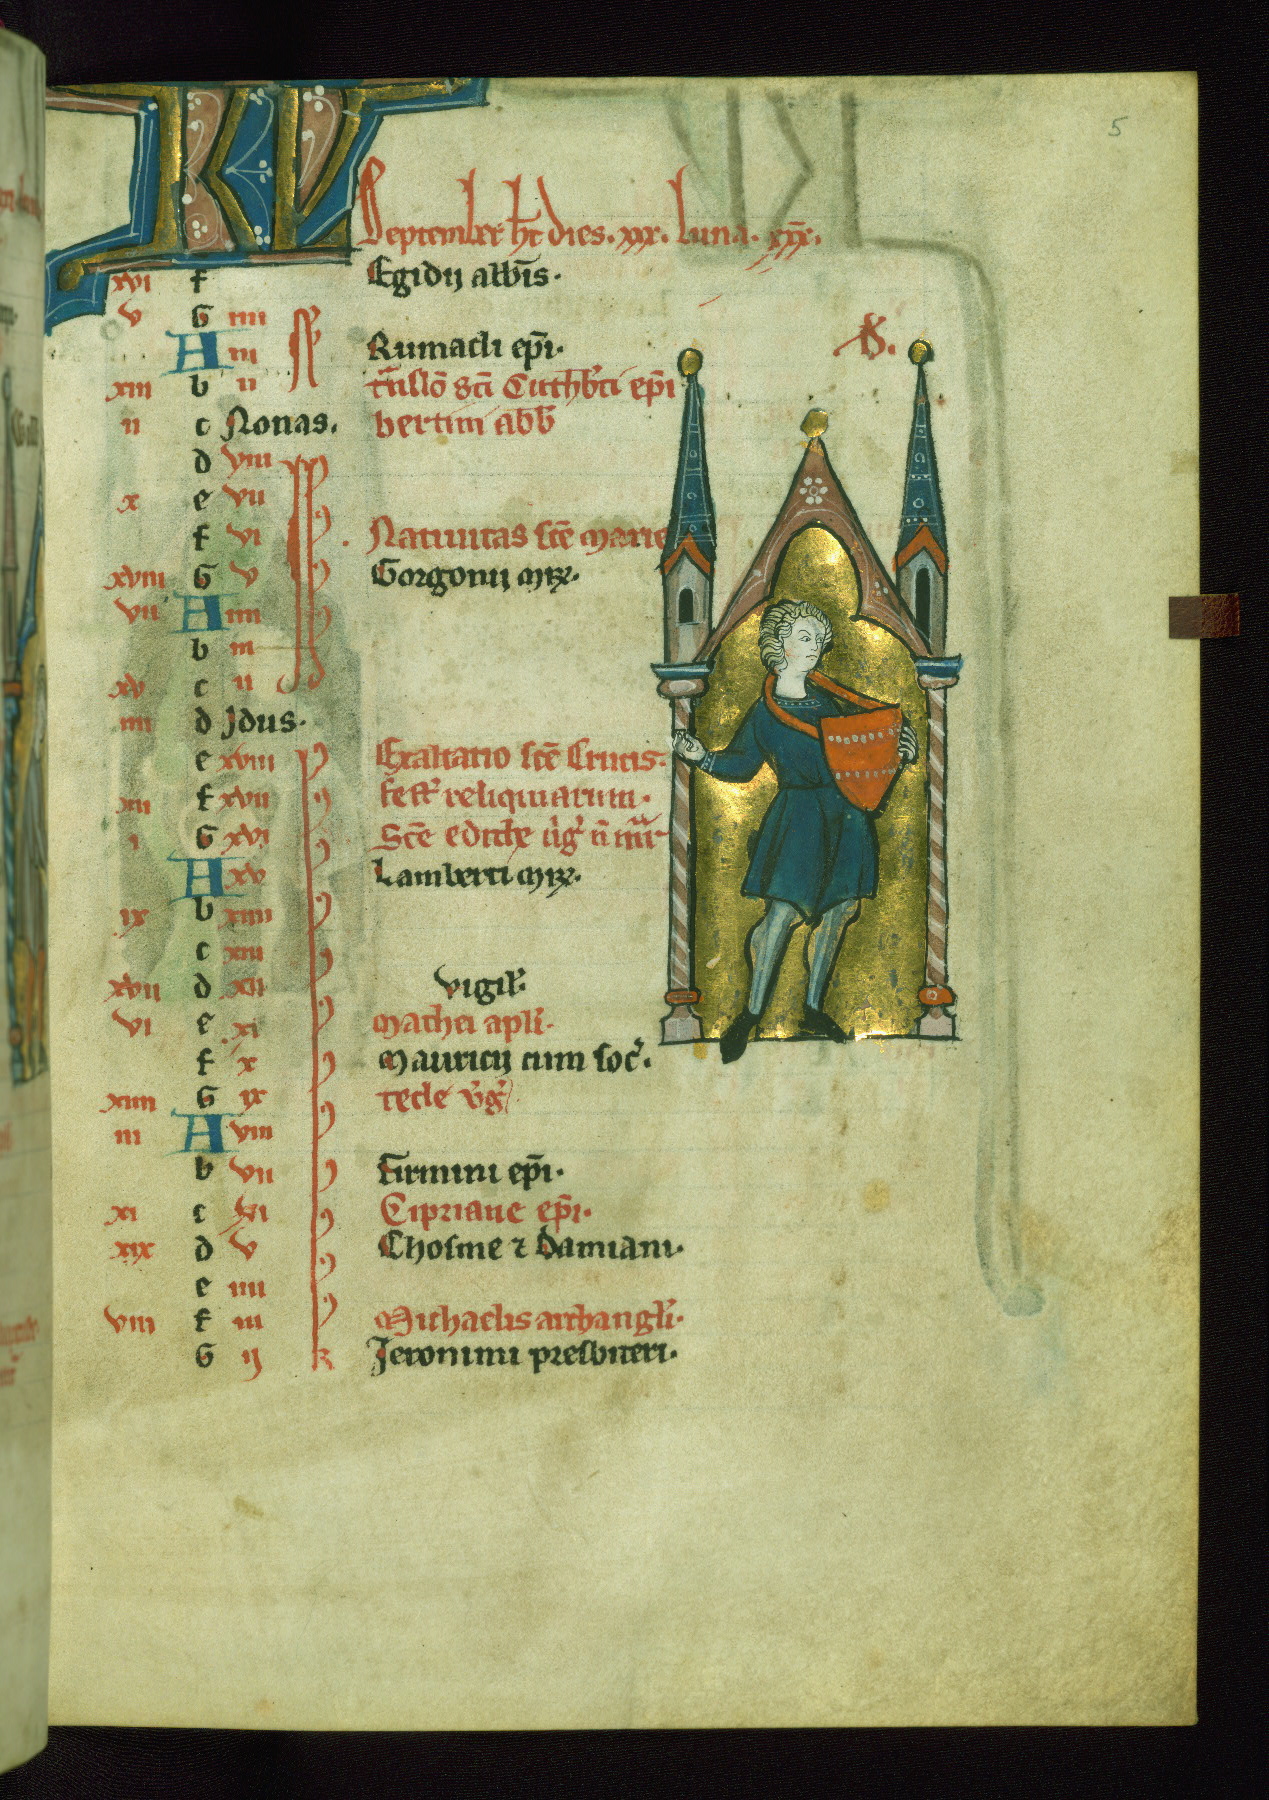 5
KL September ht dies. xxx. luna. xxx.
xvi f Egidij abbis.
v G iiii N
A iii Rumacli epi. .B.
xiii b ii tnslo sci Cuthbti epi
ii c Nonas. bertini abb
d viii
x e vii
f vi Natiuitas sce marie
xviii G v Gorgonij mr.
vii A iiii
b iii
xv c ii
iiii d Idus.
e xviii Exaltatio sce Crucis.
xii f xvii fest reliquiarum.
i G xvi Sce edithe
A xv Lamberti mr.
ix b xiiii
c xiii
xvii d xii vigil.
vi e xi Mathei apli.
f x Mauricij cum soc.
xiiii G ix tecle vg
iii A viii
b vii Firmini epi.
xi c vi Cipriane epi.
xix d v Chosme ⁊ Damiani.
e iiii
viii f iii Michaelis archangli.
G ij k Jeronimi presbiteri.